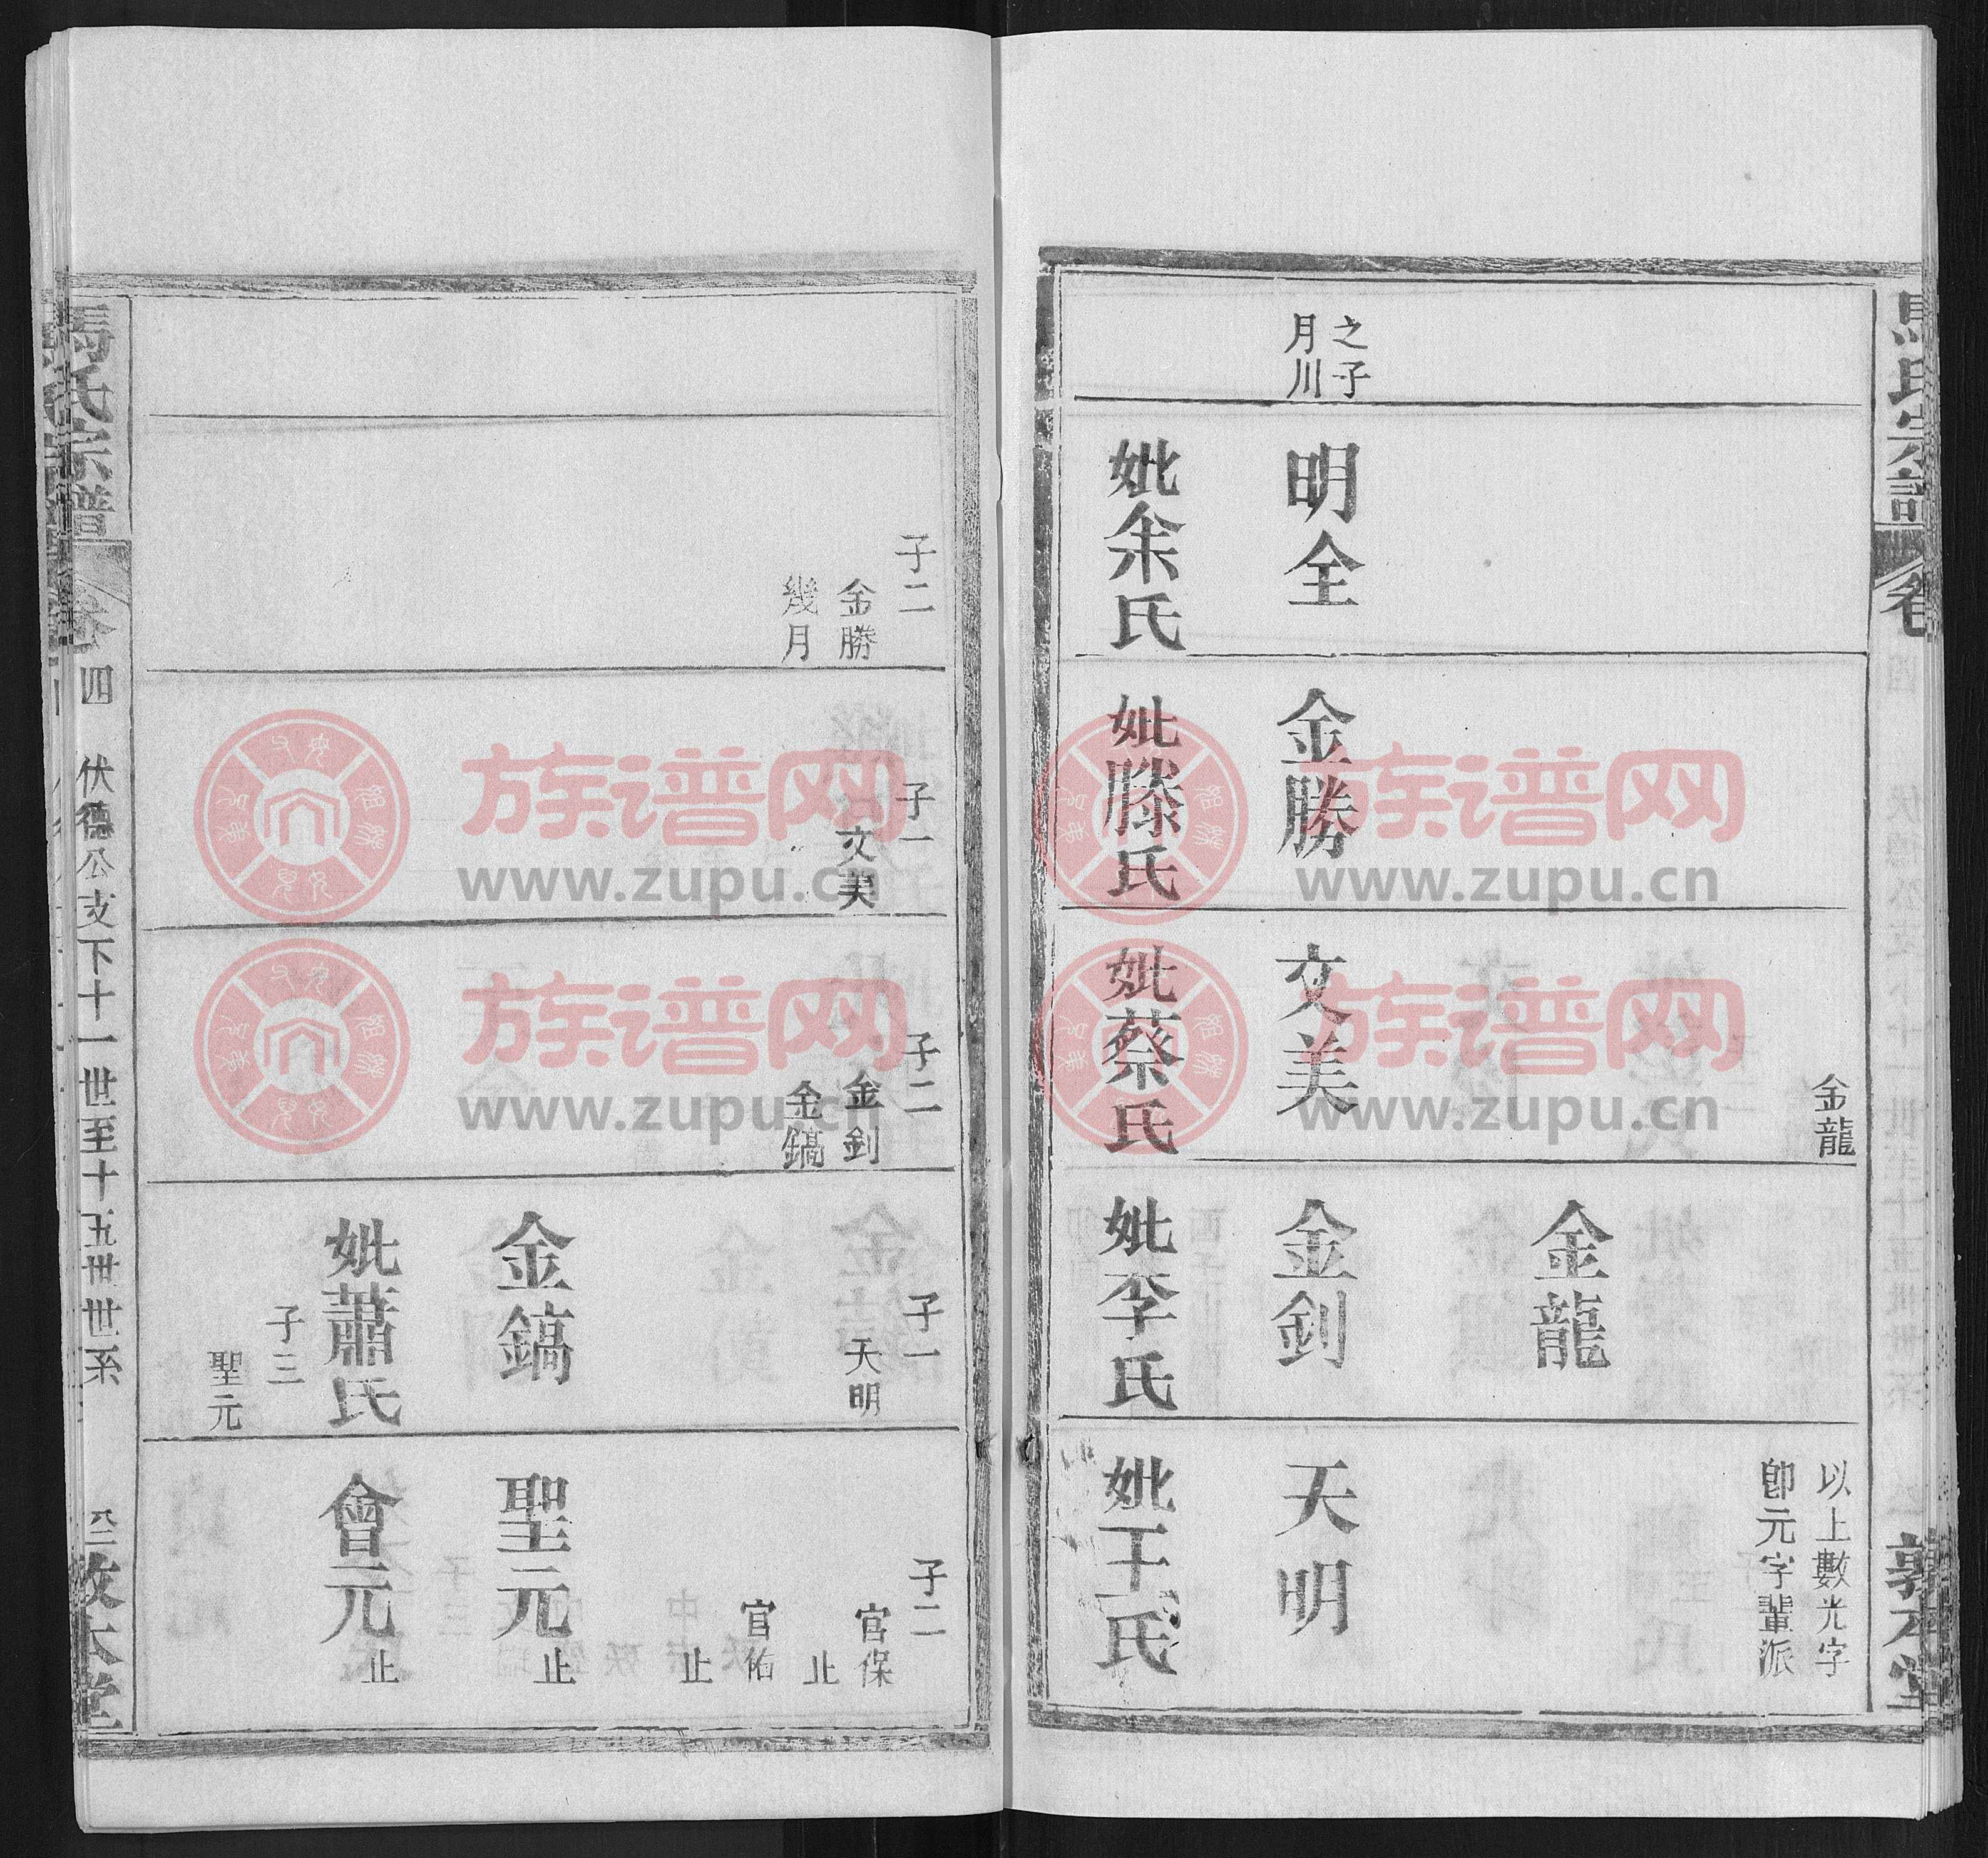 馬氏宗譜
卷
敦本堂
之子
月川
明全
妣余氏
金勝
妣滕氏
金龍
文美
妣蔡氏
金龍
金釗
妣李氏
以上數光字
卽元字輩派
天明
妣王氏
子二
金勝
幾月
子一
文美
子二
金釗
金鎬
子一
天明
金鎬
妣蕭氏
子三
聖元
子二
官保
止
官佑
止
聖元
止
會元
止
馬氏宗譜
卷四
伏德公支下十一世至十五世世系
敦本堂
族谱网
www.zupu.cn
族谱网
www.zupu.cn
族谱网
www.zupu.cn
族谱网
www.zupu.cn